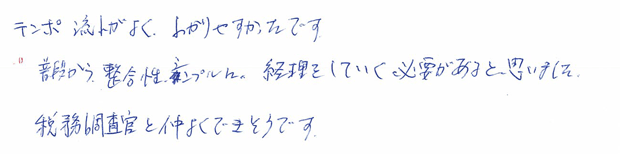 テンポ 流れがよく、わかりやすかったです
普段から、整合性、シンプルに。経理をしていく必要があると思いました。
税務調査官と仲よくできそうです。